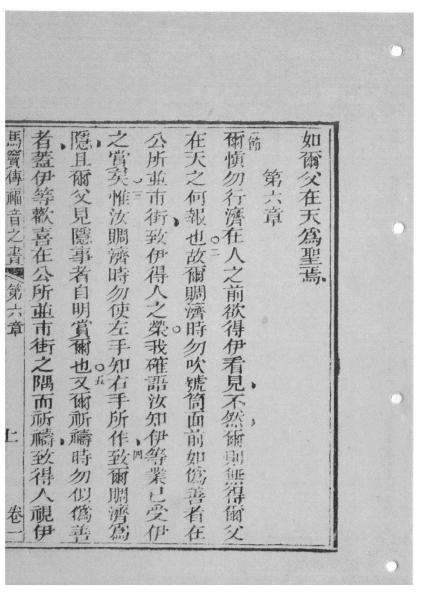 如爾父在天為聖焉
第六章
一節爾慎勿行濟在人之前欲得伊看見不然爾則無得爾父
在天之何報也二故爾賙濟時勿吹號筒面前如偽善者在
公所並市街致伊得人之榮我確語汝知伊等業已受伊
之賞矣三惟汝賙濟時勿使左手知右手所作四致爾賙濟為
隱且爾父見隱事者自明賞爾也五又爾祈禱時勿似偽善
者蓋伊等歡喜在公所並市街之隅而祈禱致得人視伊
馬竇傳福音之書 第六章 上 卷一